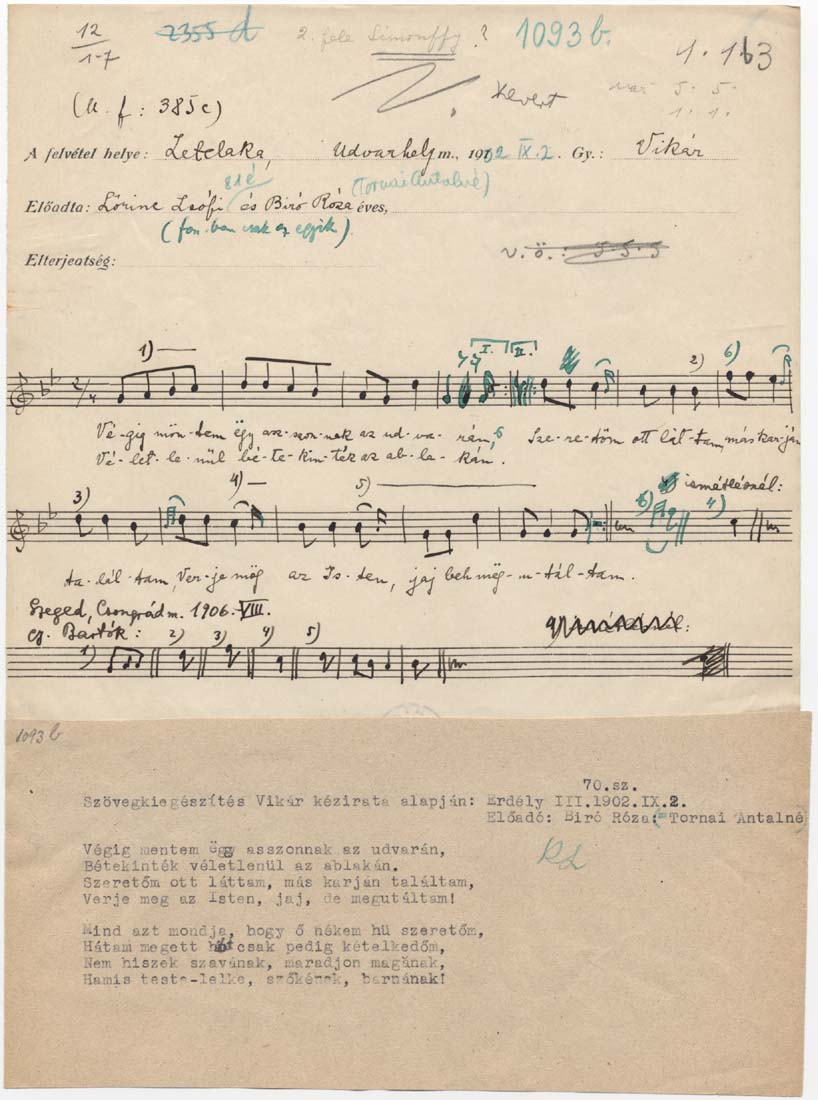 12
1-7
2355 d
2. fele Simonffy?
1093 b.
1. 163
(M. f: 385c)
Kevert
5. 5.
1. 1.
A felvétel helye: Letelaka, Udvarhely m., 1902 IX. 2. Gy.: Vikár
(Tornai Antalné)
Előadta: Lőrinc Zsófi és Biró Róza éves,
(fon. ban csak az egyik).
Elterjeatség:
v. ö.: 5·5·5
1)
I. II.
2) 6)
2/4
Vé-gig möntem ëgy asz-szon-nak az ud-va-rán, Sze-re-töm ott lát-tam, más kar-ján
Vé-let-le-nül bé-te-kin-téz az ab-la-kán.
3) 4) 5) ismétlésnél:
6) 4)
ta-lál-tam, Ver-je mög az Is-ten, jaj beh mëg-u-tál-tam.
Szeged, Csongrád m. 1906. VIII.
gy. Bartók:
1) 2) 3) 4) 5)
1093 b
70.sz.
Szövegkiegészítés Vikár kézirata alapján: Erdély III.1902.IX.2.
Előadó: Biró Róza(=Tornai Antalné)
Végig mentem ëgy asszonnak az udvarán,
Bétekinték véletlenül az ablakán.
Szeretőm ott láttam, más karján találtam,
Verje meg az Isten, jaj, de megutáltam!
Mind azt mondja, hogy ő nékem hü szeretőm,
Hátam megett hát csak pedig kételkedőm,
Nem hiszek szavának, maradjon magának,
Hamis teste-lelke, szőkének, barnának!